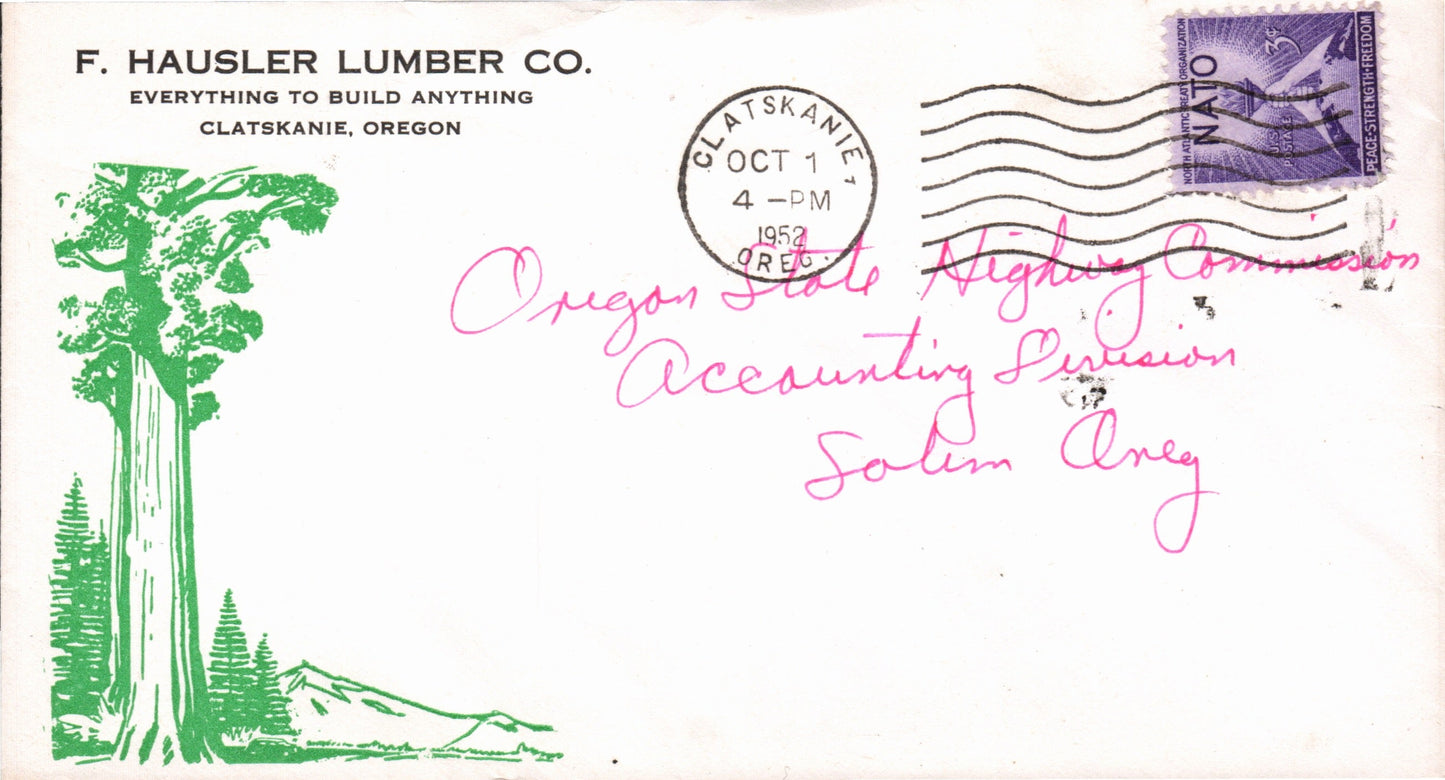 F. HAUSLER LUMBER CO.
EVERYTHING TO BUILD ANYTHING
CLATSKANIE, OREGON
CLATSKANIE,
OCT 1
4 -PM
1952
OREG.
NORTH ATLANTIC TREATY ORGANIZATION
NATO
3¢
U.S.
POSTAGE
PEACE·STRENGTH·FREEDOM
Oregon State Highway Commission
Accounting Division
Salem Oreg